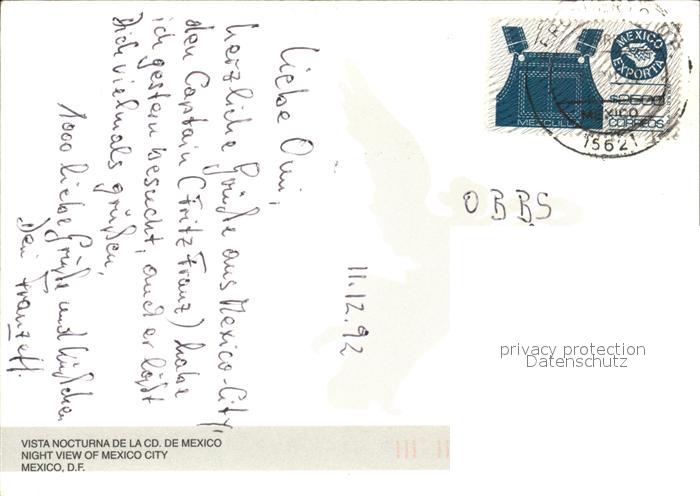 Liebe Omi,
herzliche Grüße aus Mexico-City,
den Captain (Fritz Franz) habe
ich gestern besucht, auch er läßt
Dich vielmals grüßen,
1000 liebe Grüße und Küßchen
Dein Franzeff.
11.12.92
MEXICO
EXPORTA
$2500
CORREOS
MEXICO
15621
OBBS
privacy protection
Datenschutz
VISTA NOCTURNA DE LA CD. DE MEXICO
NIGHT VIEW OF MEXICO CITY
MEXICO, D.F.